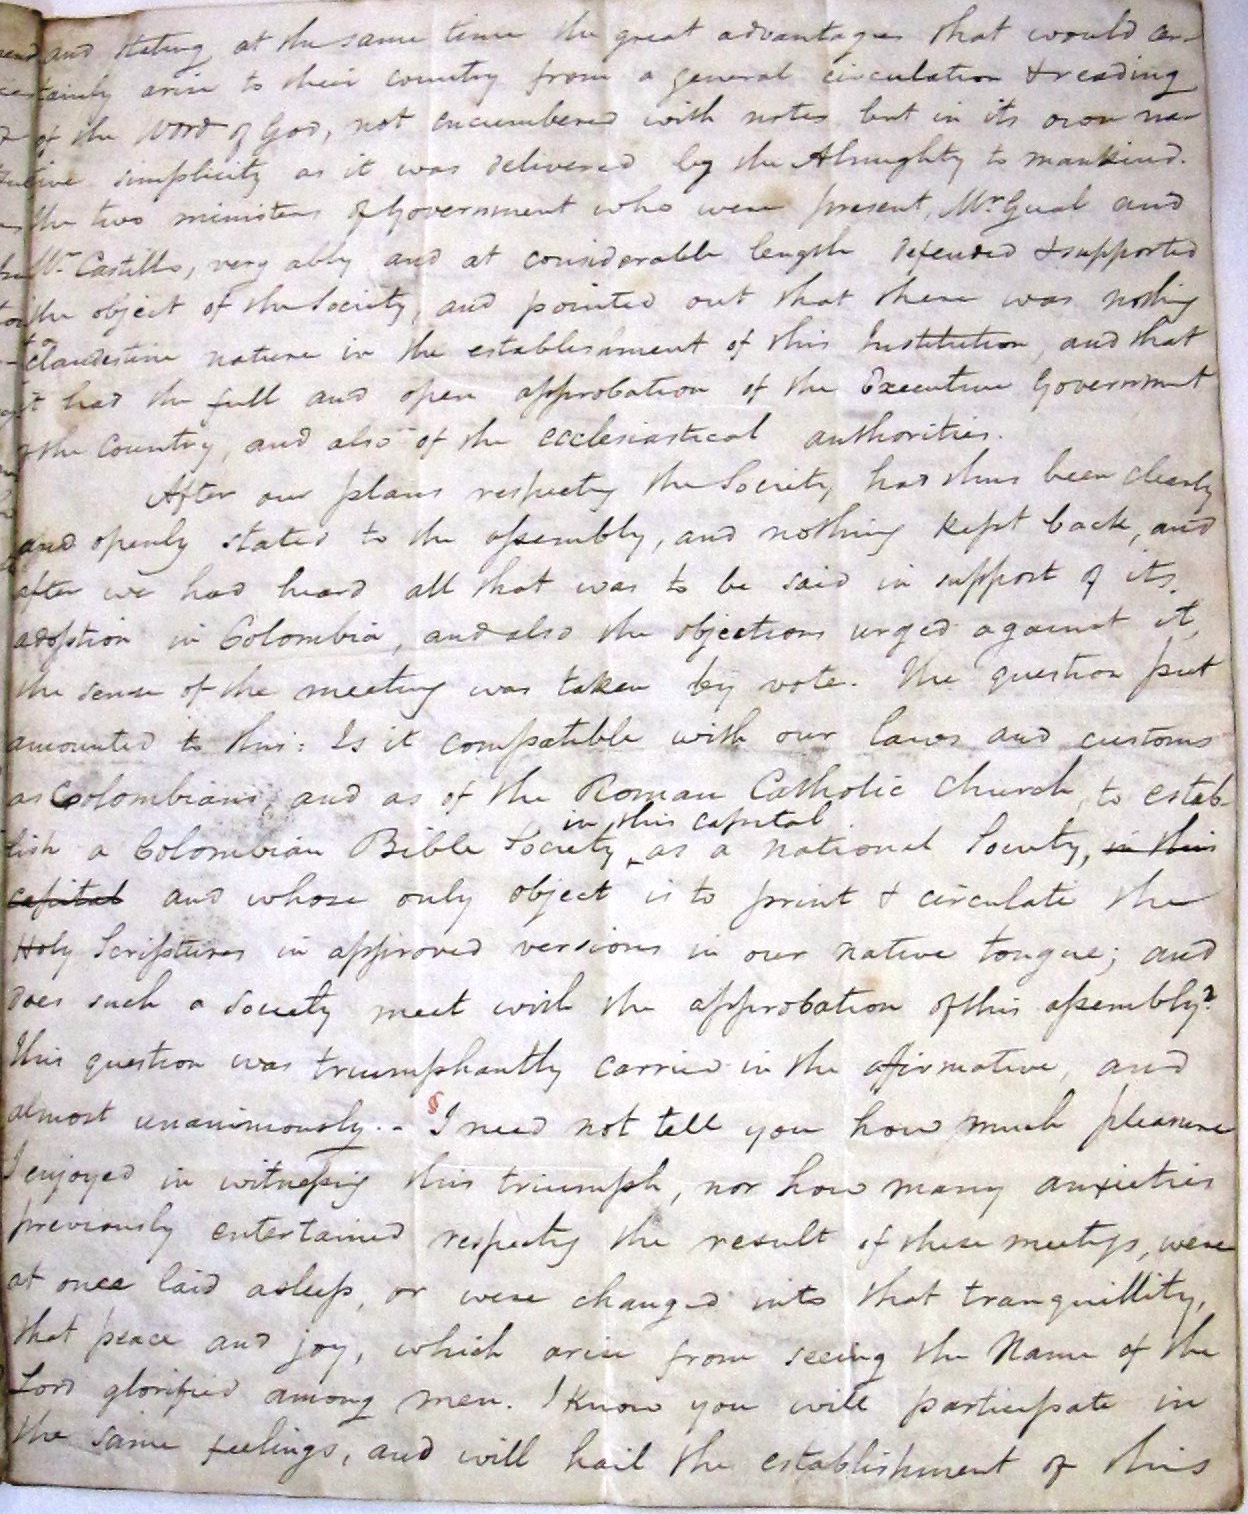 and stating at the same time the great advantages that would cer-
tainly arise to their country from a general circulation & reading
of the Word of God, not encumbered with notes but in its own na-
tive simplicity as it was delivered by the Almighty to mankind.
The two ministers of Government who were present, Mr. Gual and
Mr. Castillo, very ably and at considerable length defended & supported
the object of the Society, and pointed out that there was nothing
clandestine nature in the establishment of this Institution, and that
it had the full and open approbation of the Executive Government
of the Country, and also of the ecclesiastical authorities.
After our plans respecting the Society had thus been clearly
and openly stated to the assembly, and nothing kept back, and
after we had heard all that was to be said in support of its
adoption in Colombia, and also the objections urged against it,
the sense of the meeting was taken by vote. The question put
amounted to this: Is it compatible with our laws and customs
as Colombians, and as of the Roman Catholic Church, to estab-
in this capital
lish a Colombian Bible Society, as a national Society, in this
capital and whose only object is to print & circulate the
Holy Scriptures in approved versions in our native tongue; and
does such a Society meet with the approbation of this assembly?
This question was triumphantly carried in the afirmative, and
almost unanimously.- § I need not tell you how much pleasure
I enjoyed in witnessing this triumph, nor how many anxieties
previously entertained respecting the result of these meetings, were
at once laid asleep, or were changed into that tranquillity,
that peace and joy, which arise from seeing the Name of the
Lord glorified among men. I know you will participate in
the same feelings, and will hail the establishment of this